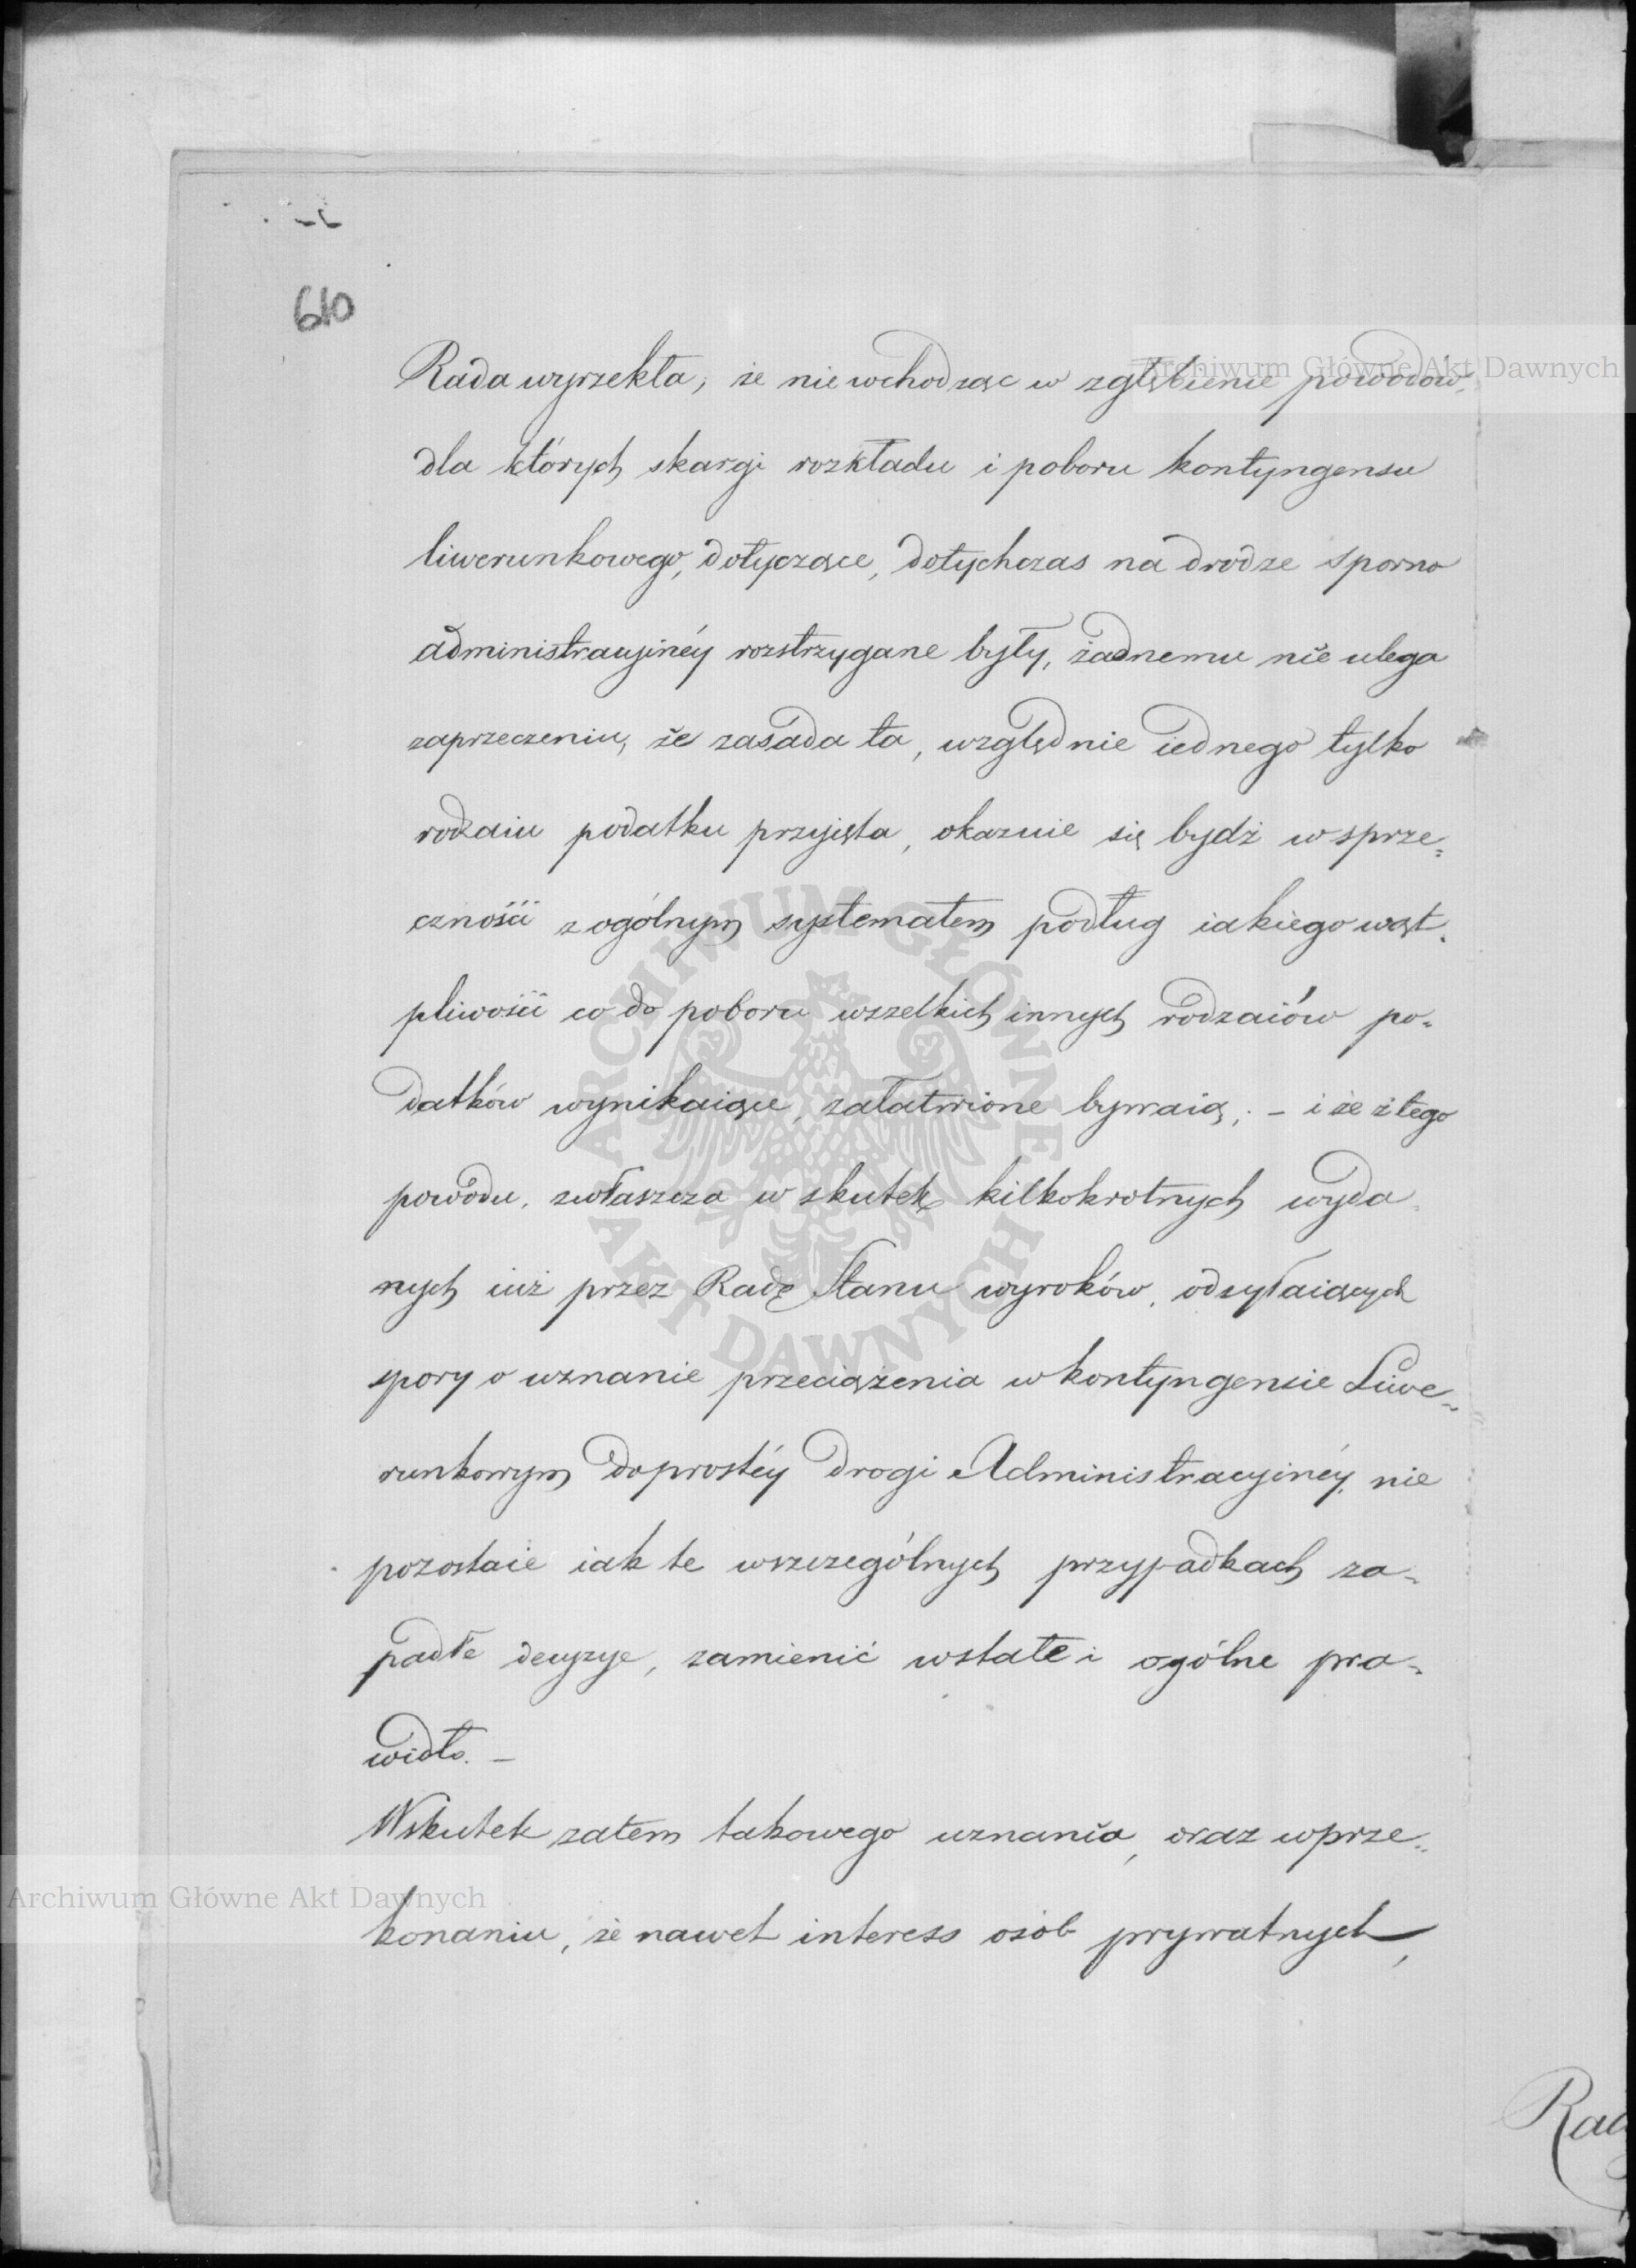 610
Rada wyrzekła, że nie wchodząc w zgłębienie powodów,
dla których skargi rozkładu i poboru kontyngensu
liwerunkowego, dotyczące, dotychczas na drodze sporno
administracyinéy rozstrzygane były, żadnemu nie ulega
zaprzeczeniu, że zasada ta, względnie iednego tylko
rodzaiu podatku przyięta, okazuie się bydź w sprze=
czności z ogólnym systematem podług iakiego wąt-
pliwości co do poboru wszelkich innych rodzaiów po-
datków wynikaiące, załatwione bywaią; - i że z tego
powodu, zwłaszcza w skutek kilkokrotnych wyda-
nych iuż przez Radę Stanu wyroków, odsyłaiących
spory o uznanie przeciążenia w kontyngensie Liwe-
runkowym do prostéy drogi Administracyinéy, nie
pozostaie iak te w szczególnych przypadkach za-
padłe decyzye, zamienić w stałe i ogólne pra-
widło. -
W skutek zatem takowego uznania, oraz w prze-
konaniu, że nawet interess osób prywatnych,
Archiwum Główne Akt Dawnych
Archiwum Główne Akt Dawnych
ARCHIWUM GŁÓWNE
AKT DAWNYCH